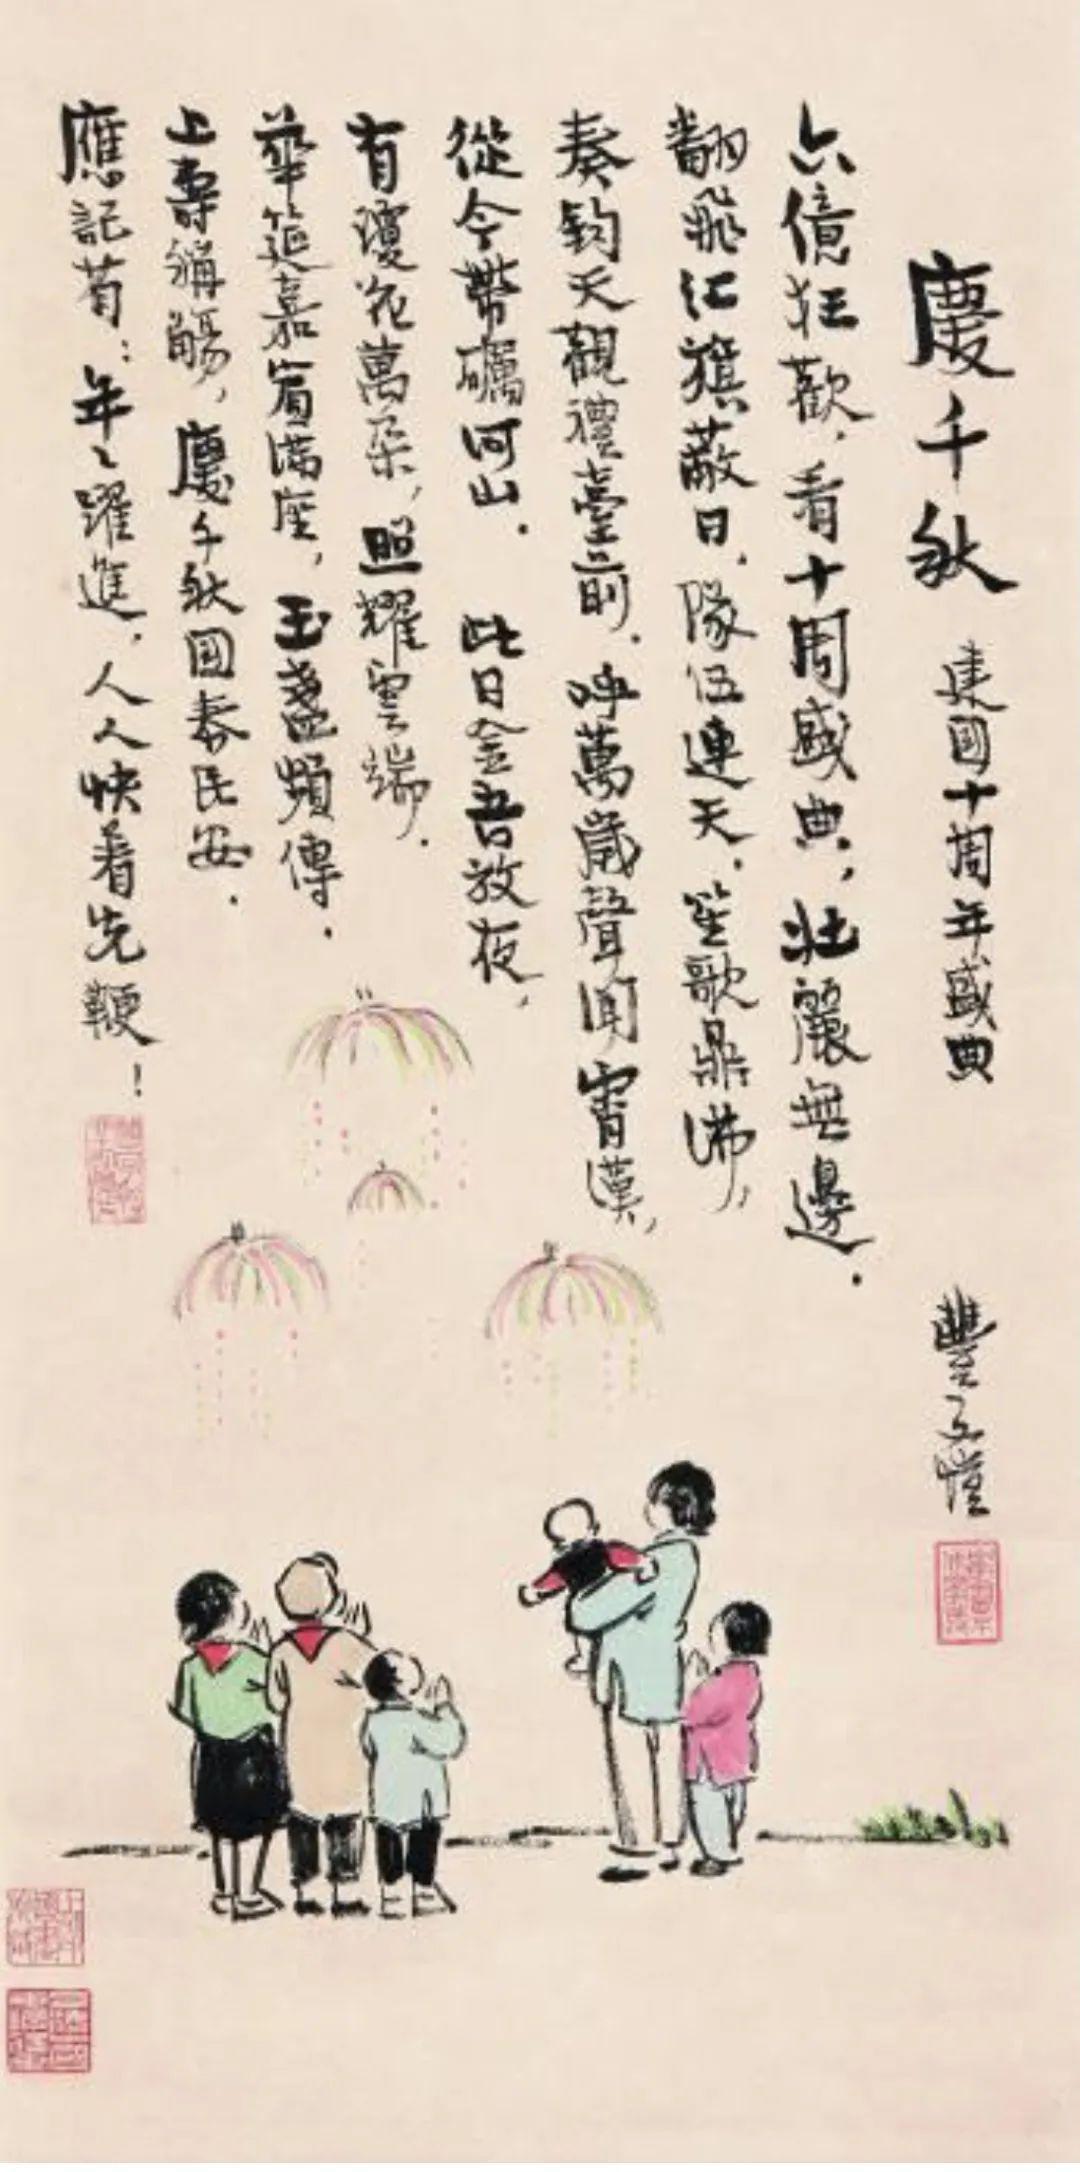 慶千秋 建國十周年盛典 豐子愷
六億狂歡，看十周盛典，壯麗無邊．
翻飛紅旗蔽日．隊伍連天．笙歌鼎沸，
奏鈞天觀禮臺前．呼萬歲聲聞宵漢，
從今帶礪河山． 此日金吾放夜，
有瓊花萬朵，照耀雲端．
華筵嘉賓滿座，玉盞頻傳．
上壽稱觴，慶千秋國泰民安．
應記着：年々躍進，人人快着先鞭！